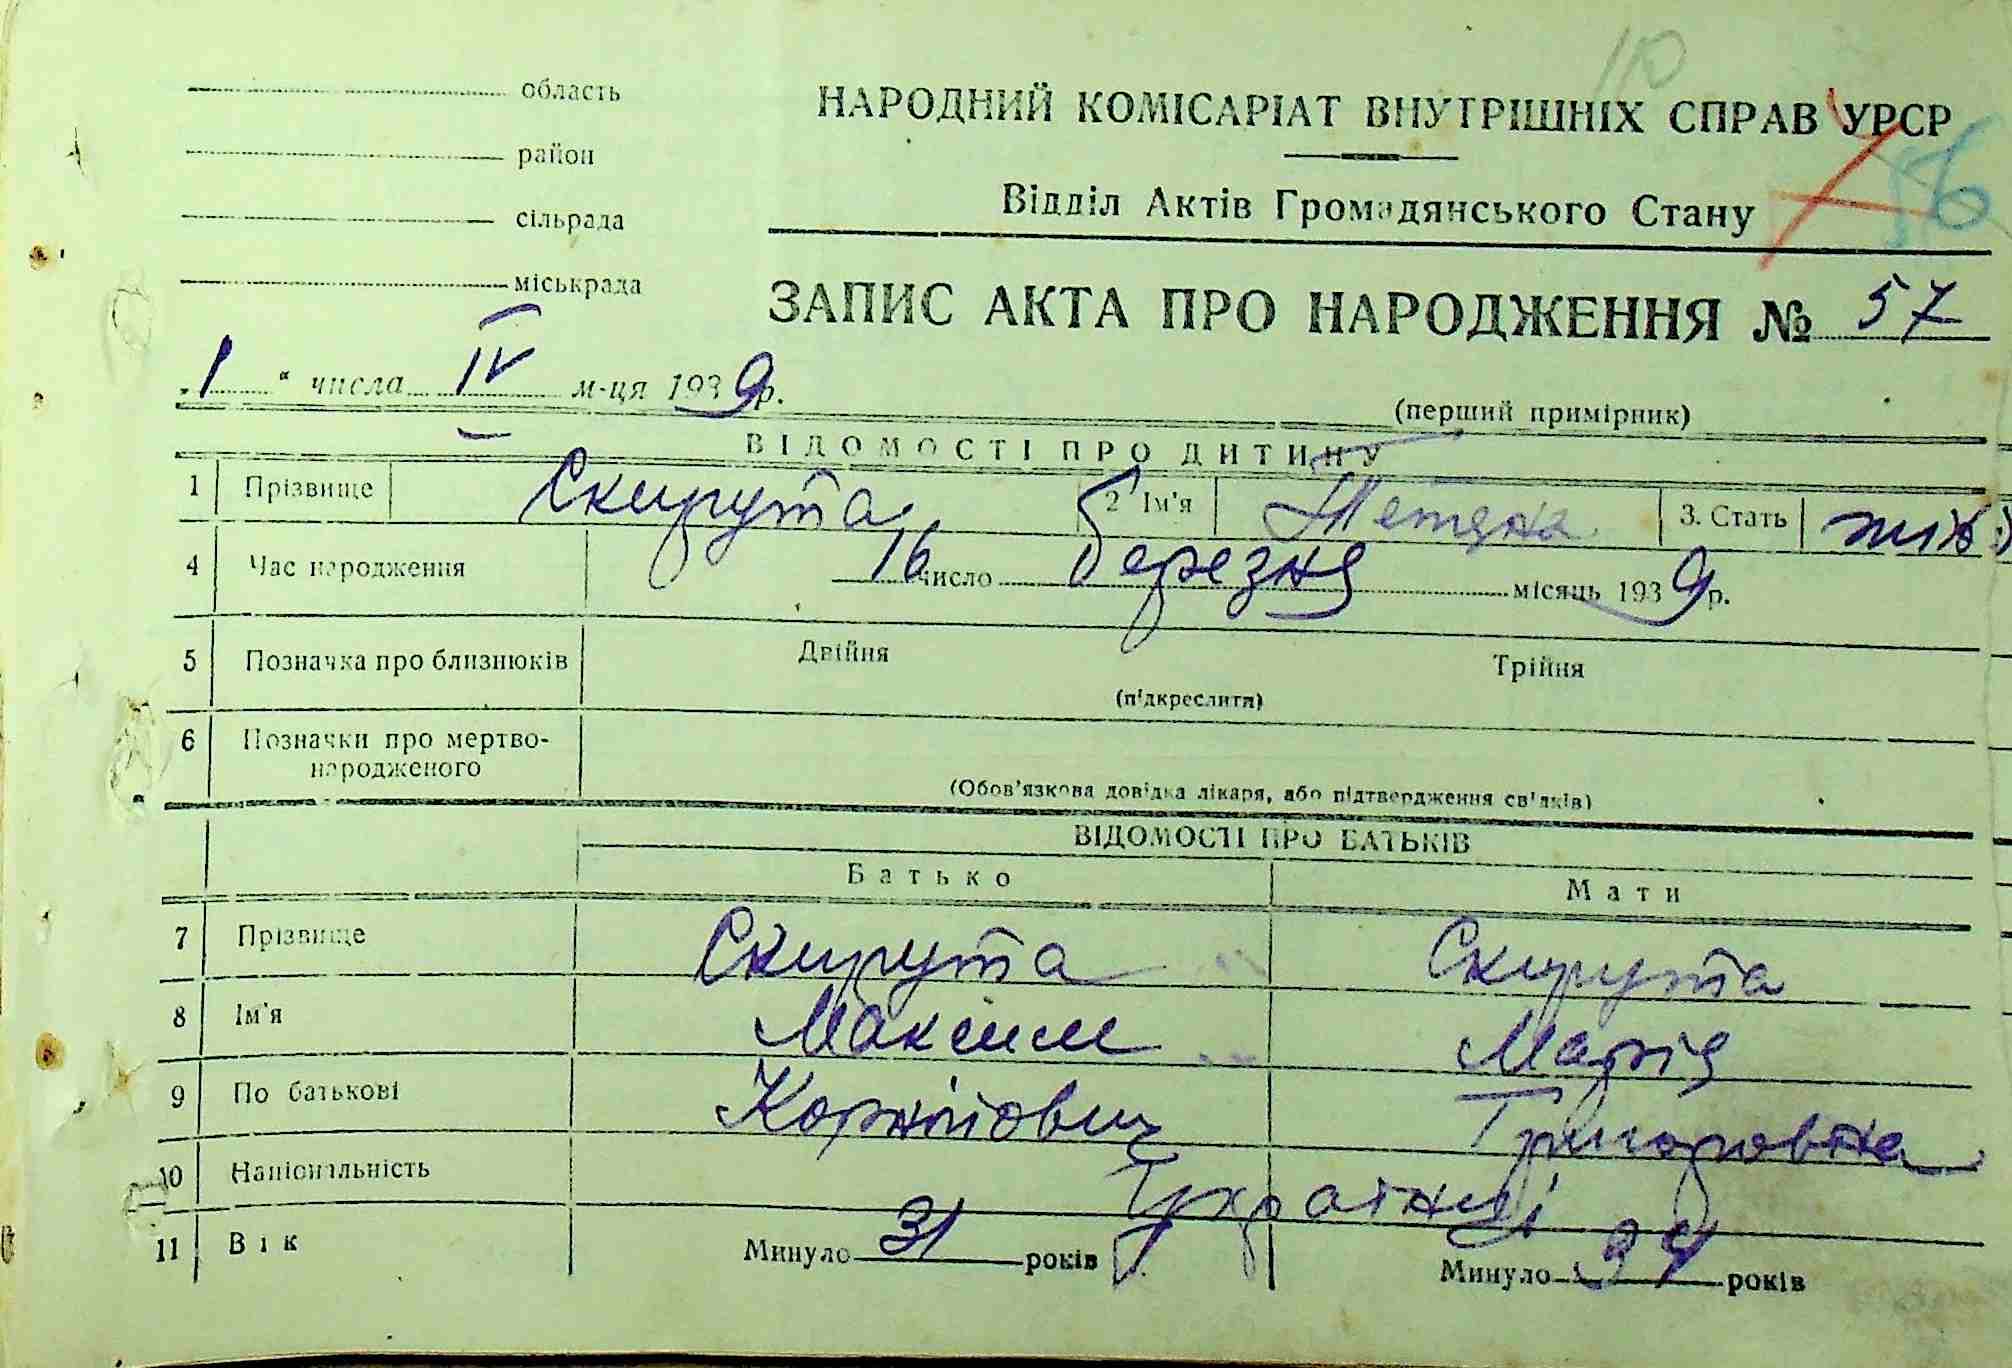 10
область
НАРОДНИЙ КОМІСАРІАТ ВНУТРІШНІХ СПРАВ УРСР
район
Відділ Актів Громадянського Стану
56
сільрада
міськрада
ЗАПИС АКТА ПРО НАРОДЖЕННЯ № 57
„1“ числа IV м-ця 1939 р.
(перший примірник)
ВІДОМОСТІ ПРО ДИТИНУ
1 Прізвище Скирута 2 Ім'я Тетяна 3. Стать жін
4 Час народження 16 число березня місяць 1939 р.
5 Позначка про близнюків Двійня Трійня
(підкреслити)
6 Позначки про мертво-
народженого
(Обов'язкова довідка лікаря, або підтвердження св'дків)
ВІДОМОСТІ ПРО БАТЬКІВ
Батько Мати
7 Прізвище Скирута Скирута
8 Ім'я Максим Марія
9 По батькові Корнійович Григоровна
10 Національність Українці
11 Вік Минуло 31 років Минуло 34 років